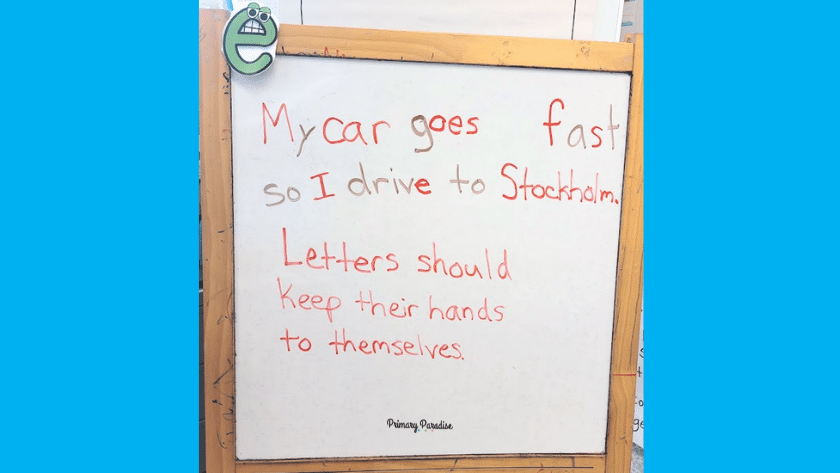 e
My car goes fast
so I drive to Stockholm.
Letters should
keep their hands
to themselves.
Primary Paradise